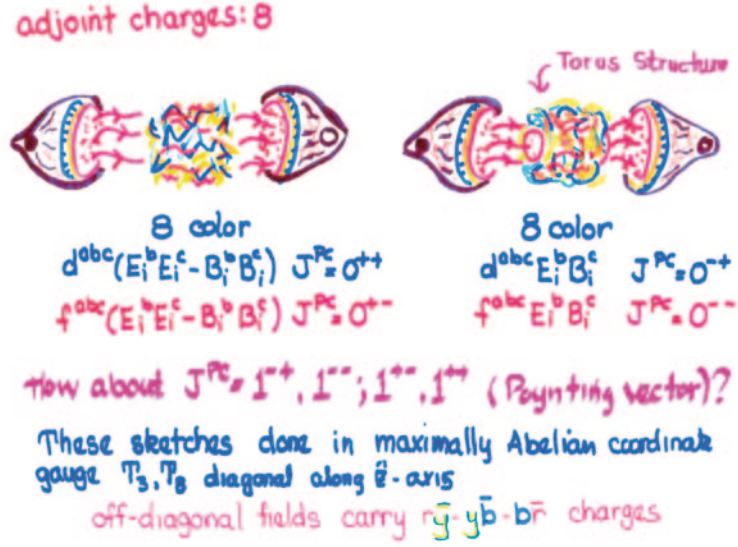 adjoint charges: 8
Torus Structure
8 color
d^{abc}(E_i^b E_i^c - B_i^b B_i^c) J^{PC} = 0^{++}
f^{abc}(E_i^b E_i^c - B_i^b B_i^c) J^{PC} = 0^{+-}
8 color
d^{abc} E_i^b B_i^c J^{PC} = 0^{-+}
f^{abc} E_i^b B_i^c J^{PC} = 0^{--}
How about J^{PC} = 1^{-+}, 1^{--}; 1^{+-}, 1^{++} (Poynting vector)?
These sketches done in maximally Abelian coordinate
gauge T_3, T_8 diagonal along ẑ-axis
off-diagonal fields carry rȳ-yb̄-br̄ charges